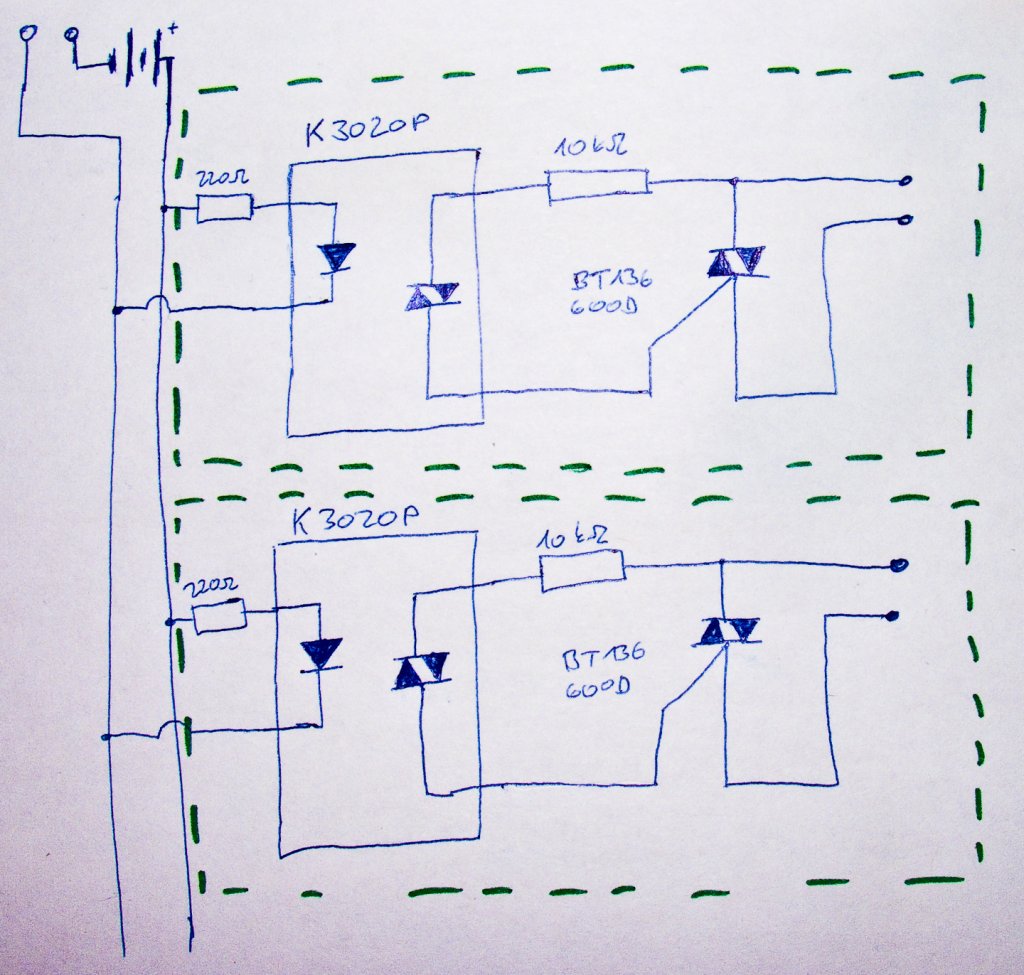 +
K3020P
220Ω
10kΩ
BT136
600D
K3020P
220Ω
10kΩ
BT136
600D